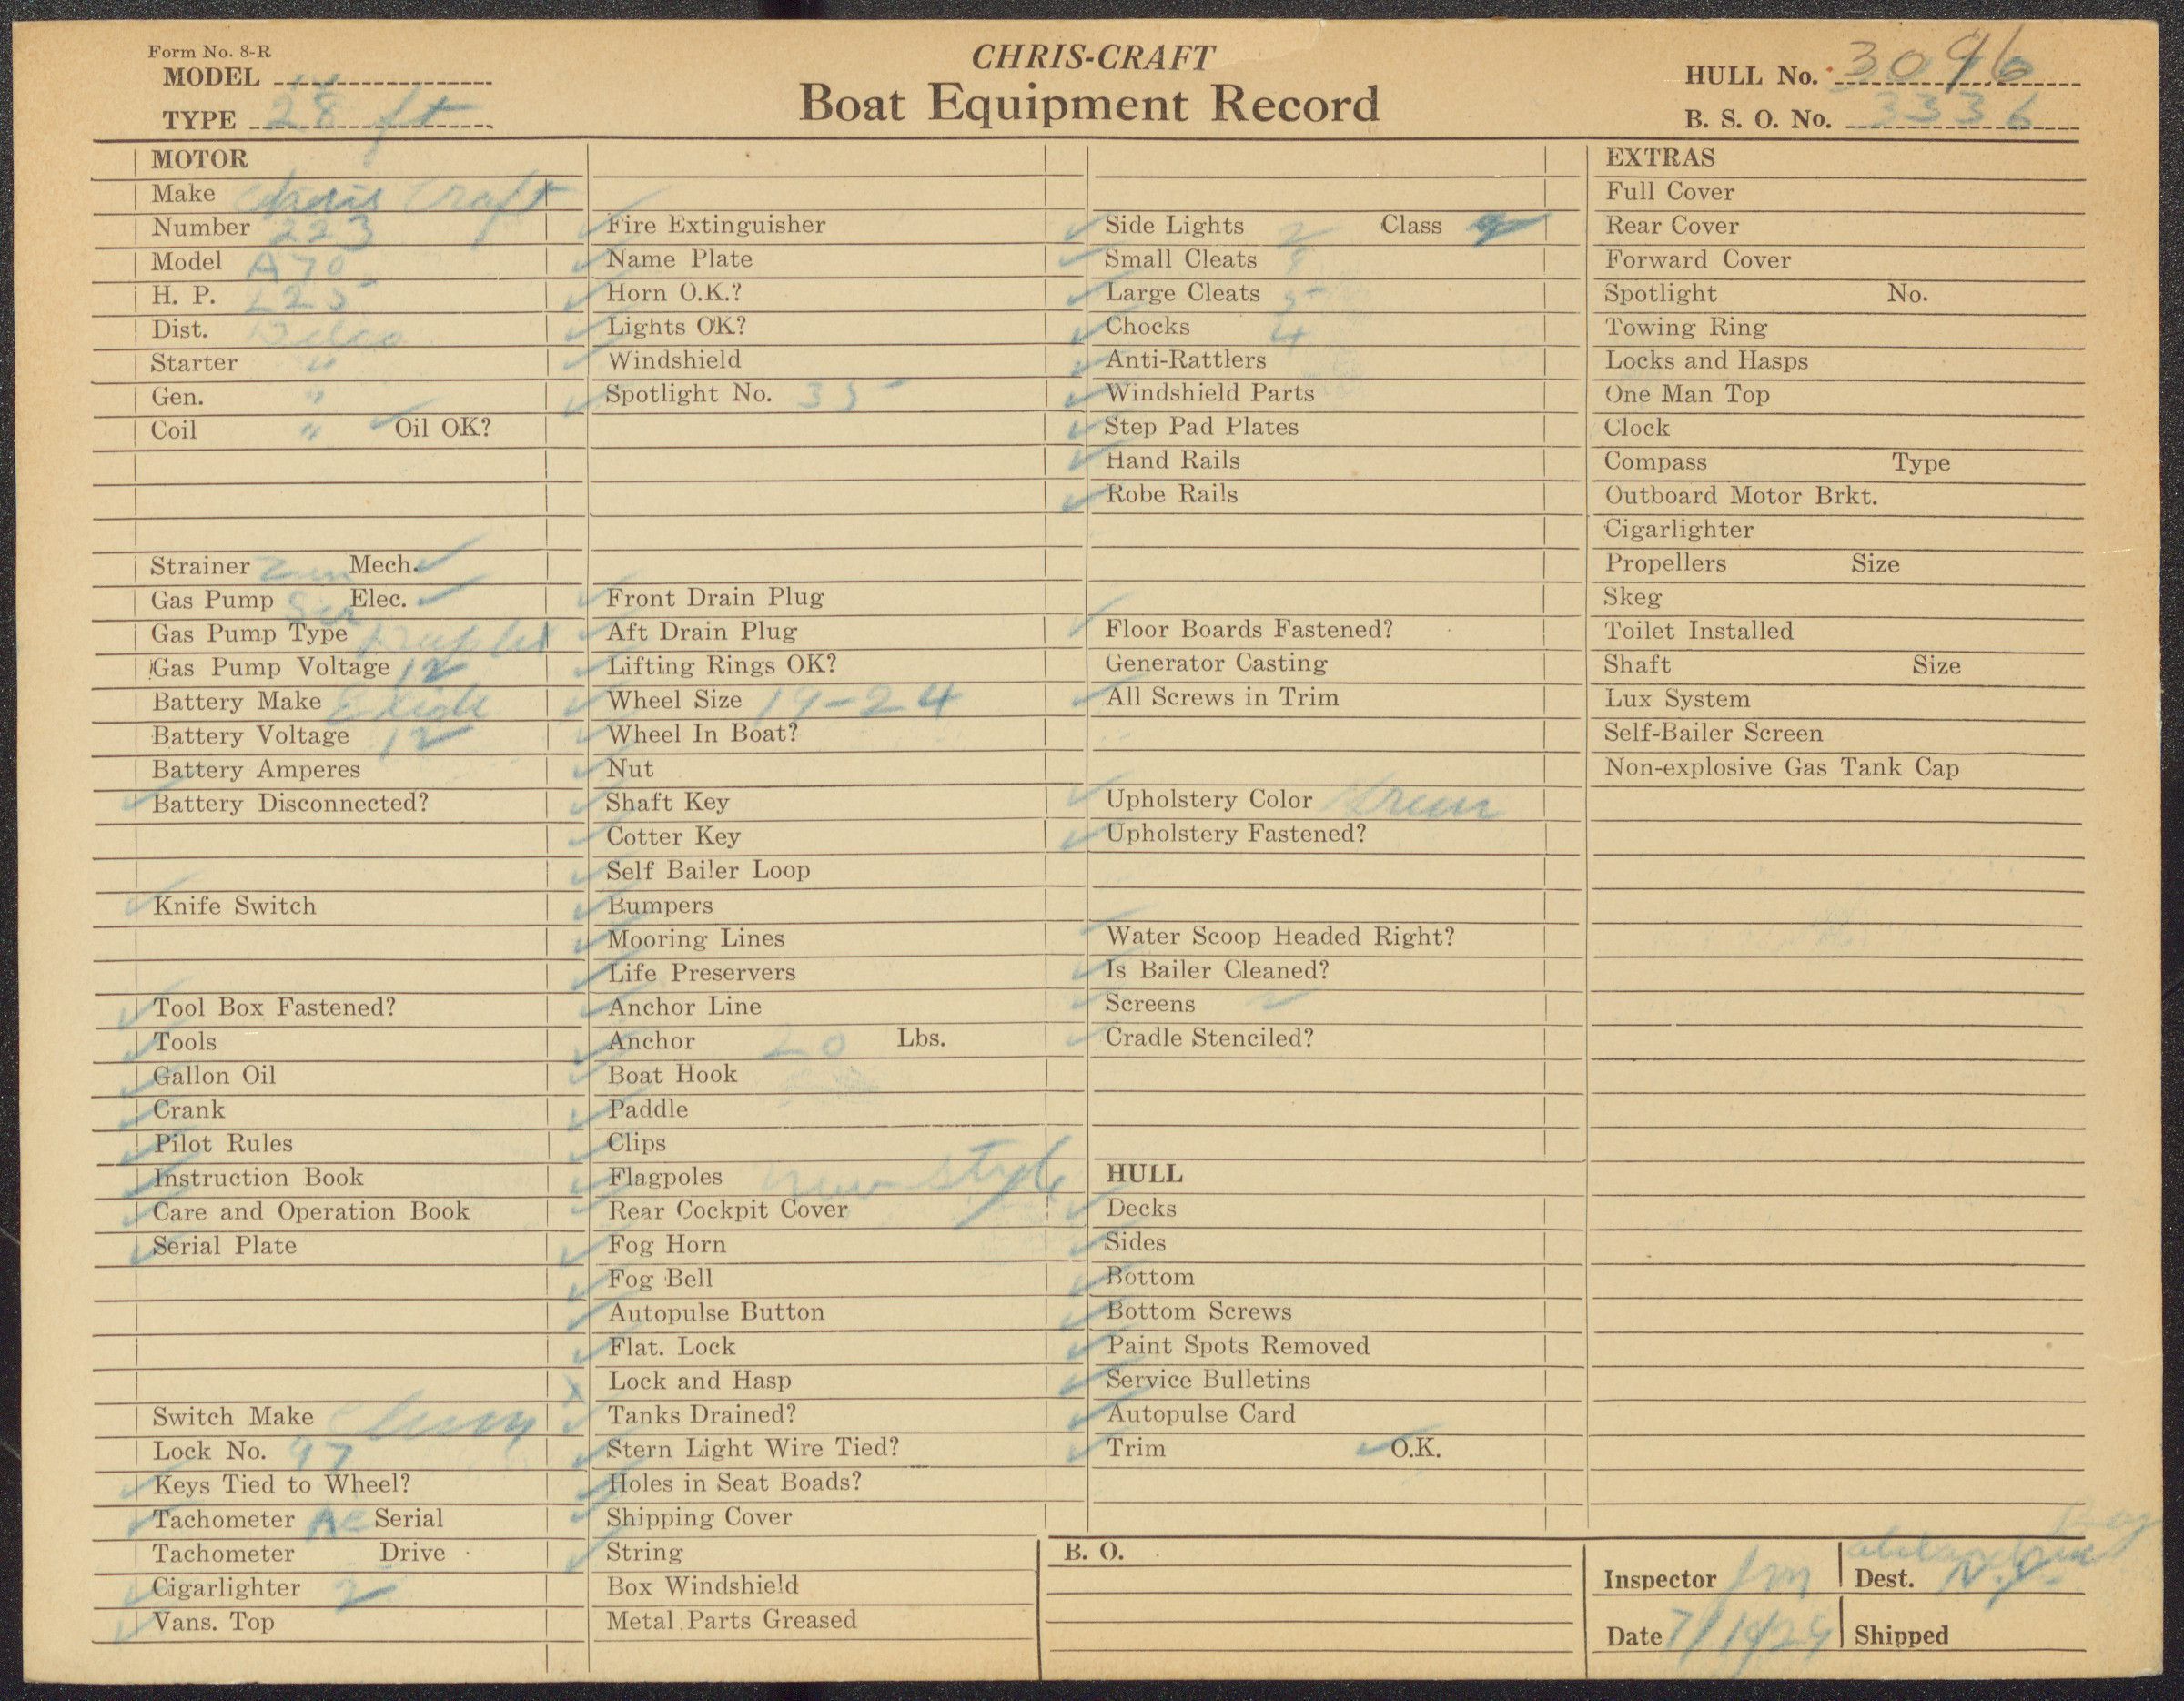 Form No. 8-R
CHRIS-CRAFT
Boat Equipment Record
MODEL
TYPE 28 ft
HULL No. 3096
B. S. O. No. 3336
MOTOR
Make Chris Craft
Number 223
Model A70
H. P. 225
Dist. Delco
Starter "
Gen. "
Coil " ✓ Oil OK?
Strainer Mech. ✓
Gas Pump Elec. ✓
Gas Pump Type
Gas Pump Voltage 12
Battery Make Exide
Battery Voltage 12
Battery Amperes
✓ Battery Disconnected?
✓ Knife Switch
✓ Tool Box Fastened?
✓ Tools
✓ Gallon Oil
✓ Crank
✓ Pilot Rules
✓ Instruction Book
✓ Care and Operation Book
✓ Serial Plate
Switch Make
Lock No. 97
✓ Keys Tied to Wheel?
✓ Tachometer AC Serial
Tachometer Drive
✓ Cigarlighter 2
✓ Vans. Top
✓ Fire Extinguisher
✓ Name Plate
✓ Horn O.K.?
✓ Lights OK?
✓ Windshield
✓ Spotlight No. 35
✓ Front Drain Plug
✓ Aft Drain Plug
✓ Lifting Rings OK?
✓ Wheel Size 19-24
✓ Wheel In Boat?
✓ Nut
✓ Shaft Key
✓ Cotter Key
✓ Self Bailer Loop
✓ Bumpers
✓ Mooring Lines
✓ Life Preservers
✓ Anchor Line
✓ Anchor 20 Lbs.
✓ Boat Hook
✓ Paddle
✓ Clips
✓ Flagpoles new style
✓ Rear Cockpit Cover
✓ Fog Horn
✓ Fog Bell
✓ Autopulse Button
✓ Flat. Lock
x Lock and Hasp
✓ Tanks Drained?
✓ Stern Light Wire Tied?
✓ Holes in Seat Boads?
✓ Shipping Cover
✓ String
Box Windshield
Metal Parts Greased
✓ Side Lights 2 Class 2
✓ Small Cleats
✓ Large Cleats
✓ Chocks 4
✓ Anti-Rattlers
✓ Windshield Parts
✓ Step Pad Plates
✓ Hand Rails
✓ Robe Rails
✓ Floor Boards Fastened?
Generator Casting
✓ All Screws in Trim
✓ Upholstery Color Green
✓ Upholstery Fastened?
✓ Water Scoop Headed Right?
✓ Is Bailer Cleaned?
✓ Screens ✓
✓ Cradle Stenciled?
HULL
✓ Decks
✓ Sides
✓ Bottom
✓ Bottom Screws
✓ Paint Spots Removed
✓ Service Bulletins
✓ Autopulse Card
✓ Trim ✓ O.K.
B. O.
EXTRAS
Full Cover
Rear Cover
Forward Cover
Spotlight No.
Towing Ring
Locks and Hasps
One Man Top
Clock
Compass Type
Outboard Motor Brkt.
Cigarlighter
Propellers Size
Skeg
Toilet Installed
Shaft Size
Lux System
Self-Bailer Screen
Non-explosive Gas Tank Cap
Inspector
Dest. Alexandria Bay N.Y.
Date 7/14/29
Shipped